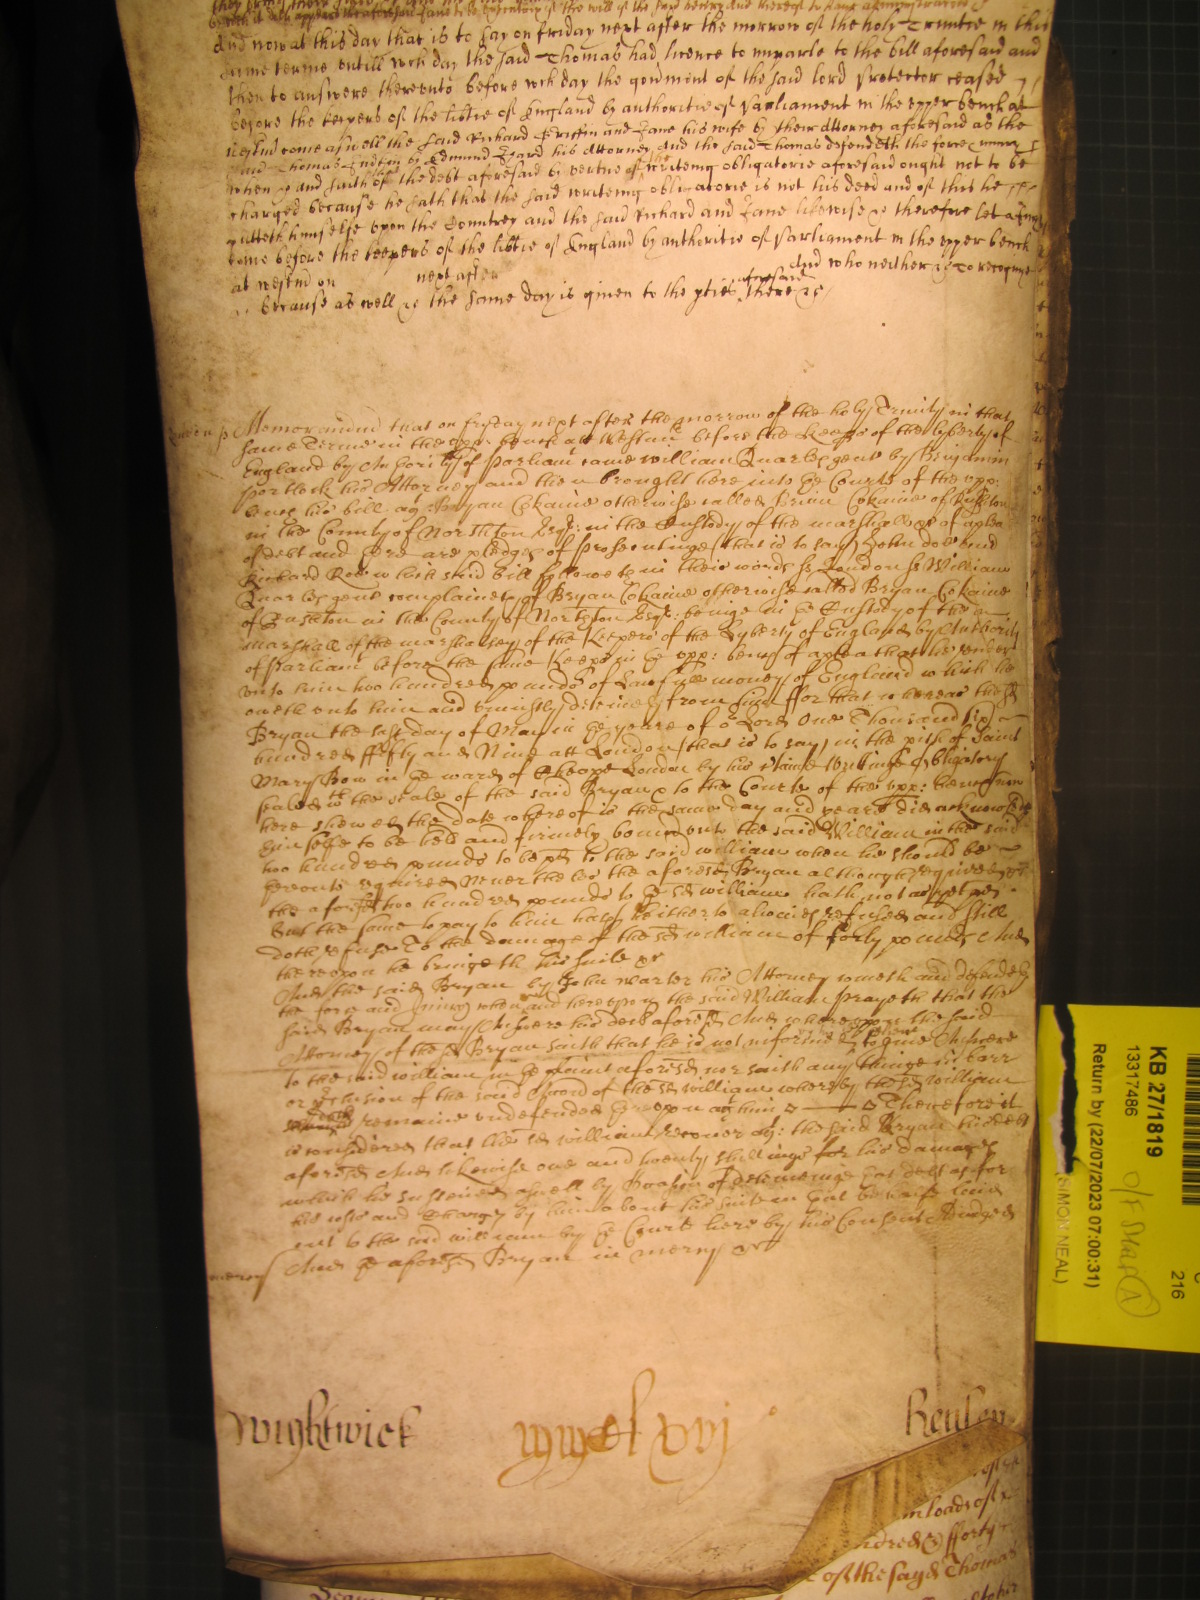 And now at this day that is to say on friday next after the morrow of the holy Trinitie in this
same terme untill wch day the said Thomas had licence to imparle to the bill aforesaid and
then to answere thereunto before wch day the goument of the said lord Protector ceased
before the keepers of the libtie of England by authoritie of Parliament in the upper bench at
westmr come aswell the said Richard Griffin and Jane his wife by their Attorney aforesaid as the
said Thomas by Edmund his Attorney And the said Thomas defendeth the force
when &c and saith that the debt aforesaid by vertue of the writeing obligatorie aforesaid ought not to be
charged because he saith that the said writeing obligatorie is not his deed and of this he
putteth himselfe upon the Countrey and the said Richard and Jane likewise &c therefore let a Jury
come before the keepers of the libtie of England by authoritie of Parliament in the upper bench
at westmr on next after And who neither &c to recognize
because as well &c the same day is given to the pties aforesaid there &c
Memorandum that on fryday next after the morrow of the holy Trinity in that
same Terme in the upp: bench att Westmr before the Keeps of the lyberty of
England by Authority of Parliamt came William Quarles gent by Benjamin
Portlock his Attorney and then brought here into ye Courte of the upp:
bench his bill agt Bryan Cokaine otherwise called Brian Cokaine of Rushton
in the County of Northton Esqr: in the Custody of the marshall &c of a plea
of debt and there are pledges of prosecutinge that is to say John doe and
Richard Roe which said bill followeth in theis words ss London ss William
Quarles gent complaineth of Bryan Cokaine otherwise called Bryan Cokaine
of Rushton in the County of Northton Esqr: beinge in ye Custody of the
marshall of the marshalsey of the Keepers of the Lyberty of England by Authority
of Parliamt before the same Keeps in ye upp: bench of a plea that he render
unto him two hundred pounds of Lawfull money of England which he
oweth unto him and uniustly deteineth from him ffor that whereas the sd
Bryan the last day of May in ye yeare of or Lord One Thousand six
hundred ffifty and Nine att London that is to say in the pish of Saint
Mary Bow in ye ward of Cheape London by his certaine Writinge Obligatory
sealed wth the seale of the said Bryan & to the Courte of the upp: bench now
here shewed the date whereof is the same day and yeare did acknowledge
himselfe to be held and firmely bound unto the said William in the said
two hundred pounds to be pd to the said William when he should be
thereunto required Neverthelesse the aforesd Bryan although required &c
the aforesd two hundred pounds to ye sd William hath not as yet pd
but the same to pay to him hath hitherto alwaies refused and still
doth refuse To the damage of the sd William of forty pounds And
thereupon he bringeth his suite &c
And the said Bryan by John Warter his Attorney cometh and defendeth
the force and iniury when &c and hereupon the said William prayeth that the
said Bryan may Answere his debt aforesd And whereuppon the said
Attorney of the sd Bryan saith that he is not informed to give Answere
to the said William in ye plaint aforesd nor saith any thinge in barr
or p'clusion of the said accon of the sd William whereby the sd William
doth remaine undefended thereupon agt him Therefore it
is considered that the sd William recover agt: the said Bryan his debt
aforesd And likewise one and twenty shillings for his damages
which he susteined aswell by Reason of deteininge that debt as for
his costs and Charges by him about his suite in that behalfe laid
out to the said William by ye Courte here by his Consent Adiudged
mercy And ye aforesd Bryan in mercy &c
Wightwick
mmcclxvj
Henley
hundred & fforty
of the sayd Thomas
KB 27/1819
13317486
Return by (22/07/2023 07:00:31)
(SIMON NEAL)
O/F Map A
216